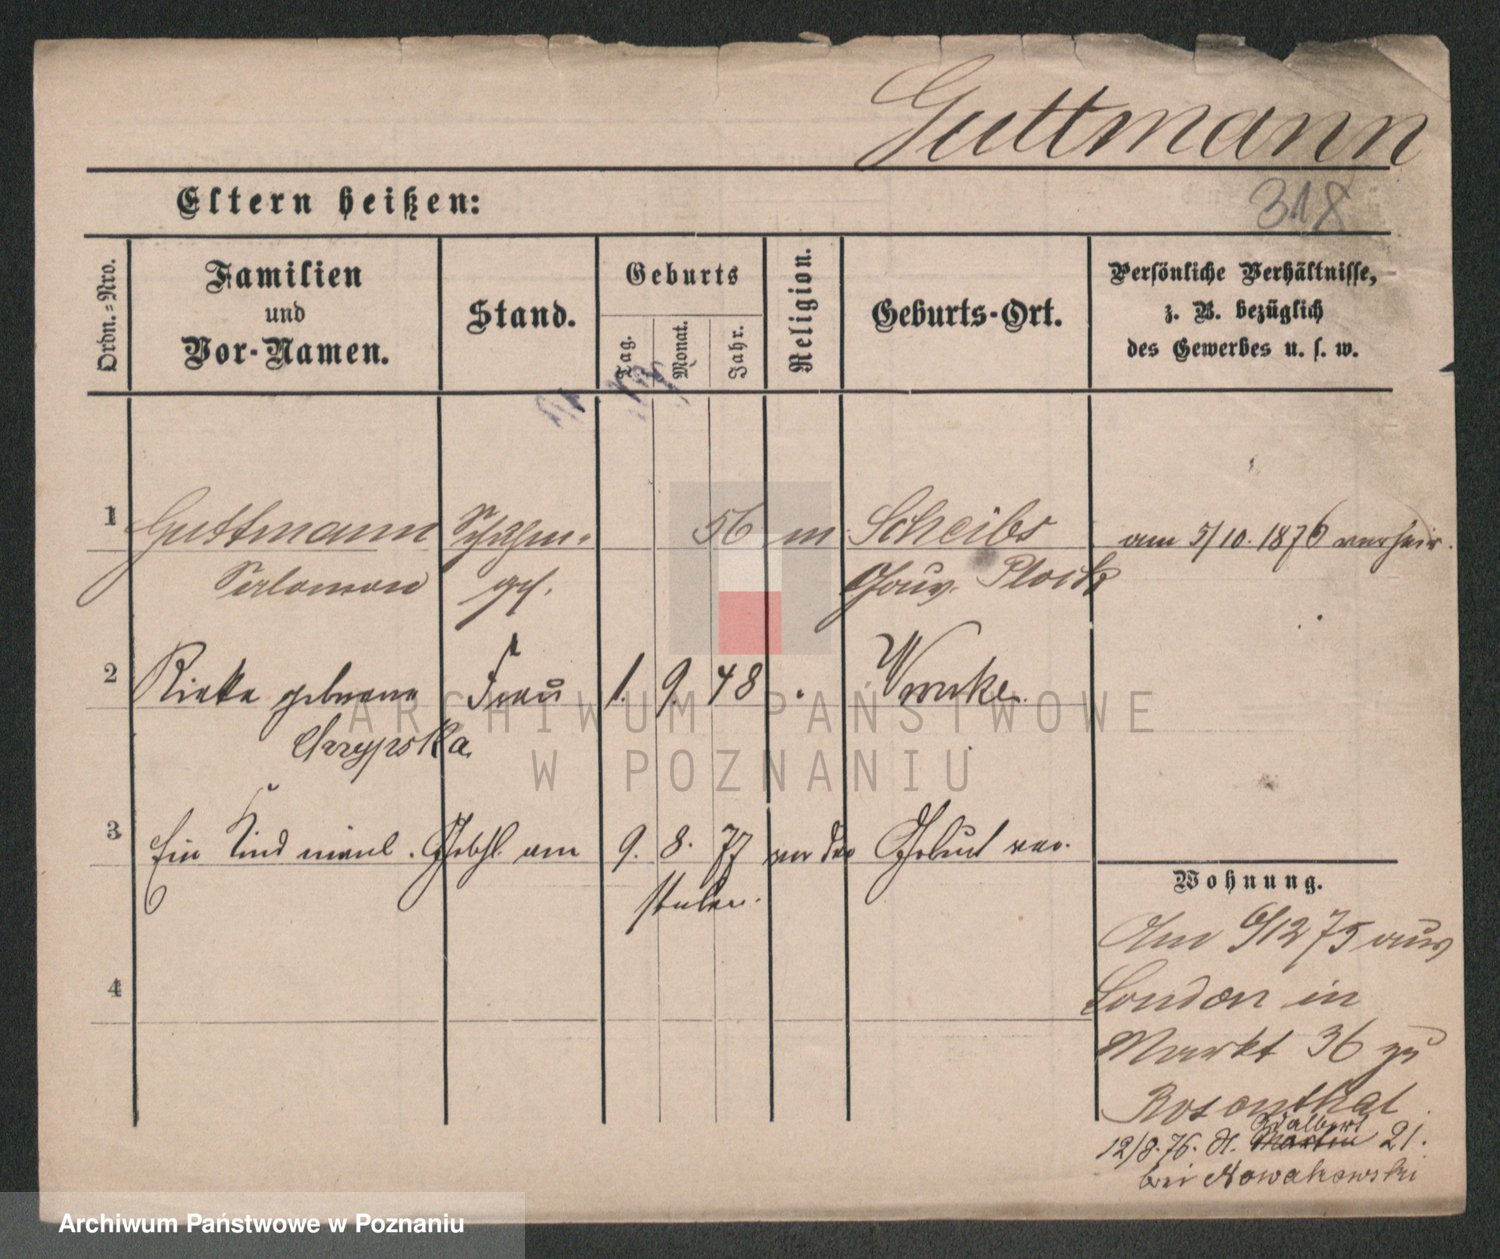 Guttmann
318
Eltern heißen:
Ordn.-Nro.
Familien
und
Vor-Namen.
Stand.
Geburts
Tag.
Monat.
Jahr.
Religion.
Geburts-Ort.
Persönliche Verhältnisse,
z. B. bezüglich
des Gewerbes u. s. w.
1 Guttmann 56 m Scheibs am 5/10. 1876 verheir.
Salomon Gouv. Plock
2 Rieka geborene Frau 1. 9. 48 Wronke
Skrzypska
3 Ein Kind männl. Geschl. am 9. 8. 77 vor der Geburt ver-
storben.
4
Wohnung.
Am 6/12 75 aus
London in
Markt 36 zu
Rosenthal
Adalbert
12/8. 76. St. Martin 21.
bei Nowakowski
ARCHIWUM PAŃSTWOWE
W POZNANIU
Archiwum Państwowe w Poznaniu